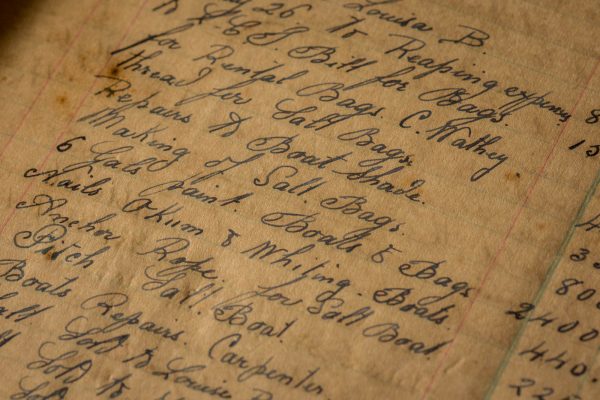 Louisa B.
26 To Reaping expenses 8
To S. E. J. Bill for Bags. 15
for Rental Bags. C. Wathey
Thread for Salt Bags.
Repairs to Boat Shade. 4
Making of Salt. Bags. 3
6 Gals paint. Boats & Bags 800
Nails Okum & Whiting. Boats 2400
Anchor Rope for Salt Boat. 440
Pitch Salt. Boat. 225
Boats Repairs. Carpenter
Sold to Louise
Sold to
Sold